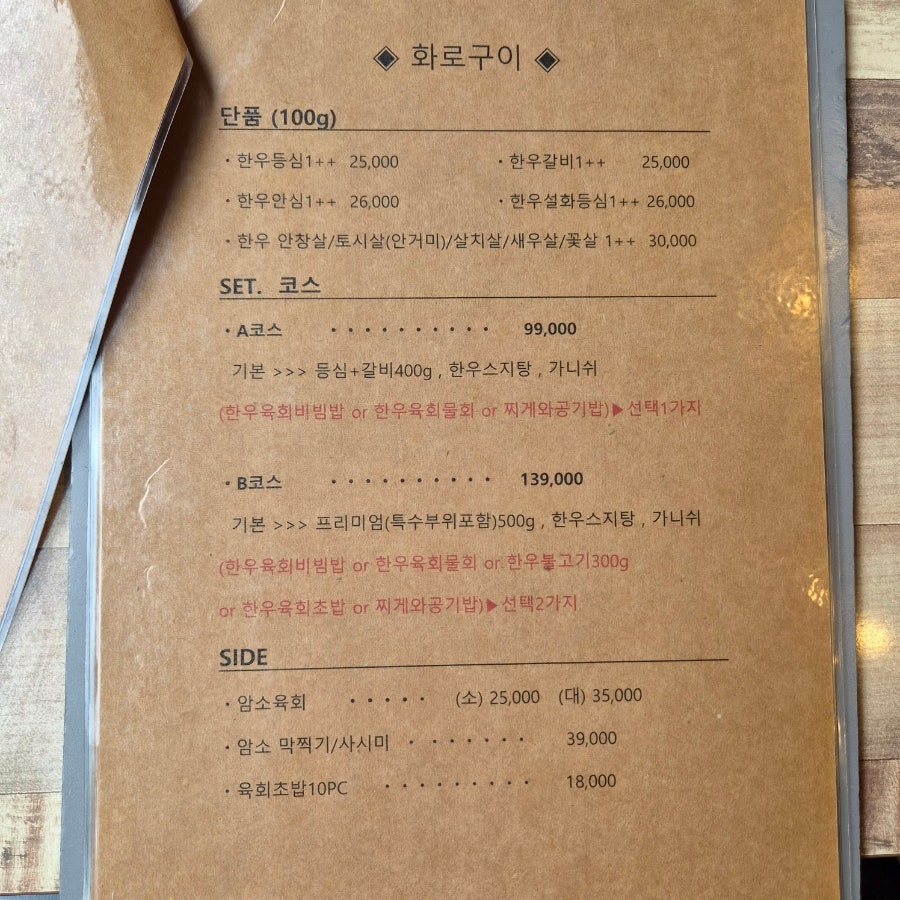 ◈ 화로구이 ◈
단품 (100g)
· 한우등심1++ 25,000 · 한우갈비1++ 25,000
· 한우안심1++ 26,000 · 한우설화등심1++ 26,000
· 한우 안창살/토시살(안거미)/살치살/새우살/꽃살 1++ 30,000
SET. 코스
· A코스 · · · · · · · · · · 99,000
기본 >>> 등심+갈비400g , 한우스지탕 , 가니쉬
(한우육회비빔밥 or 한우육회물회 or 찌게와공기밥)▶선택1가지
· B코스 · · · · · · · · · · 139,000
기본 >>> 프리미엄(특수부위포함)500g , 한우스지탕 , 가니쉬
(한우육회비빔밥 or 한우육회물회 or.한우불고기300g
or 한우육회초밥 or 찌게와공기밥)▶선택2가지
SIDE
· 암소육회 · · · · · (소) 25,000 (대) 35,000
· 암소 막찍기/사시미 · · · · · · · 39,000
· 육회초밥10PC · · · · · · · · · 18,000